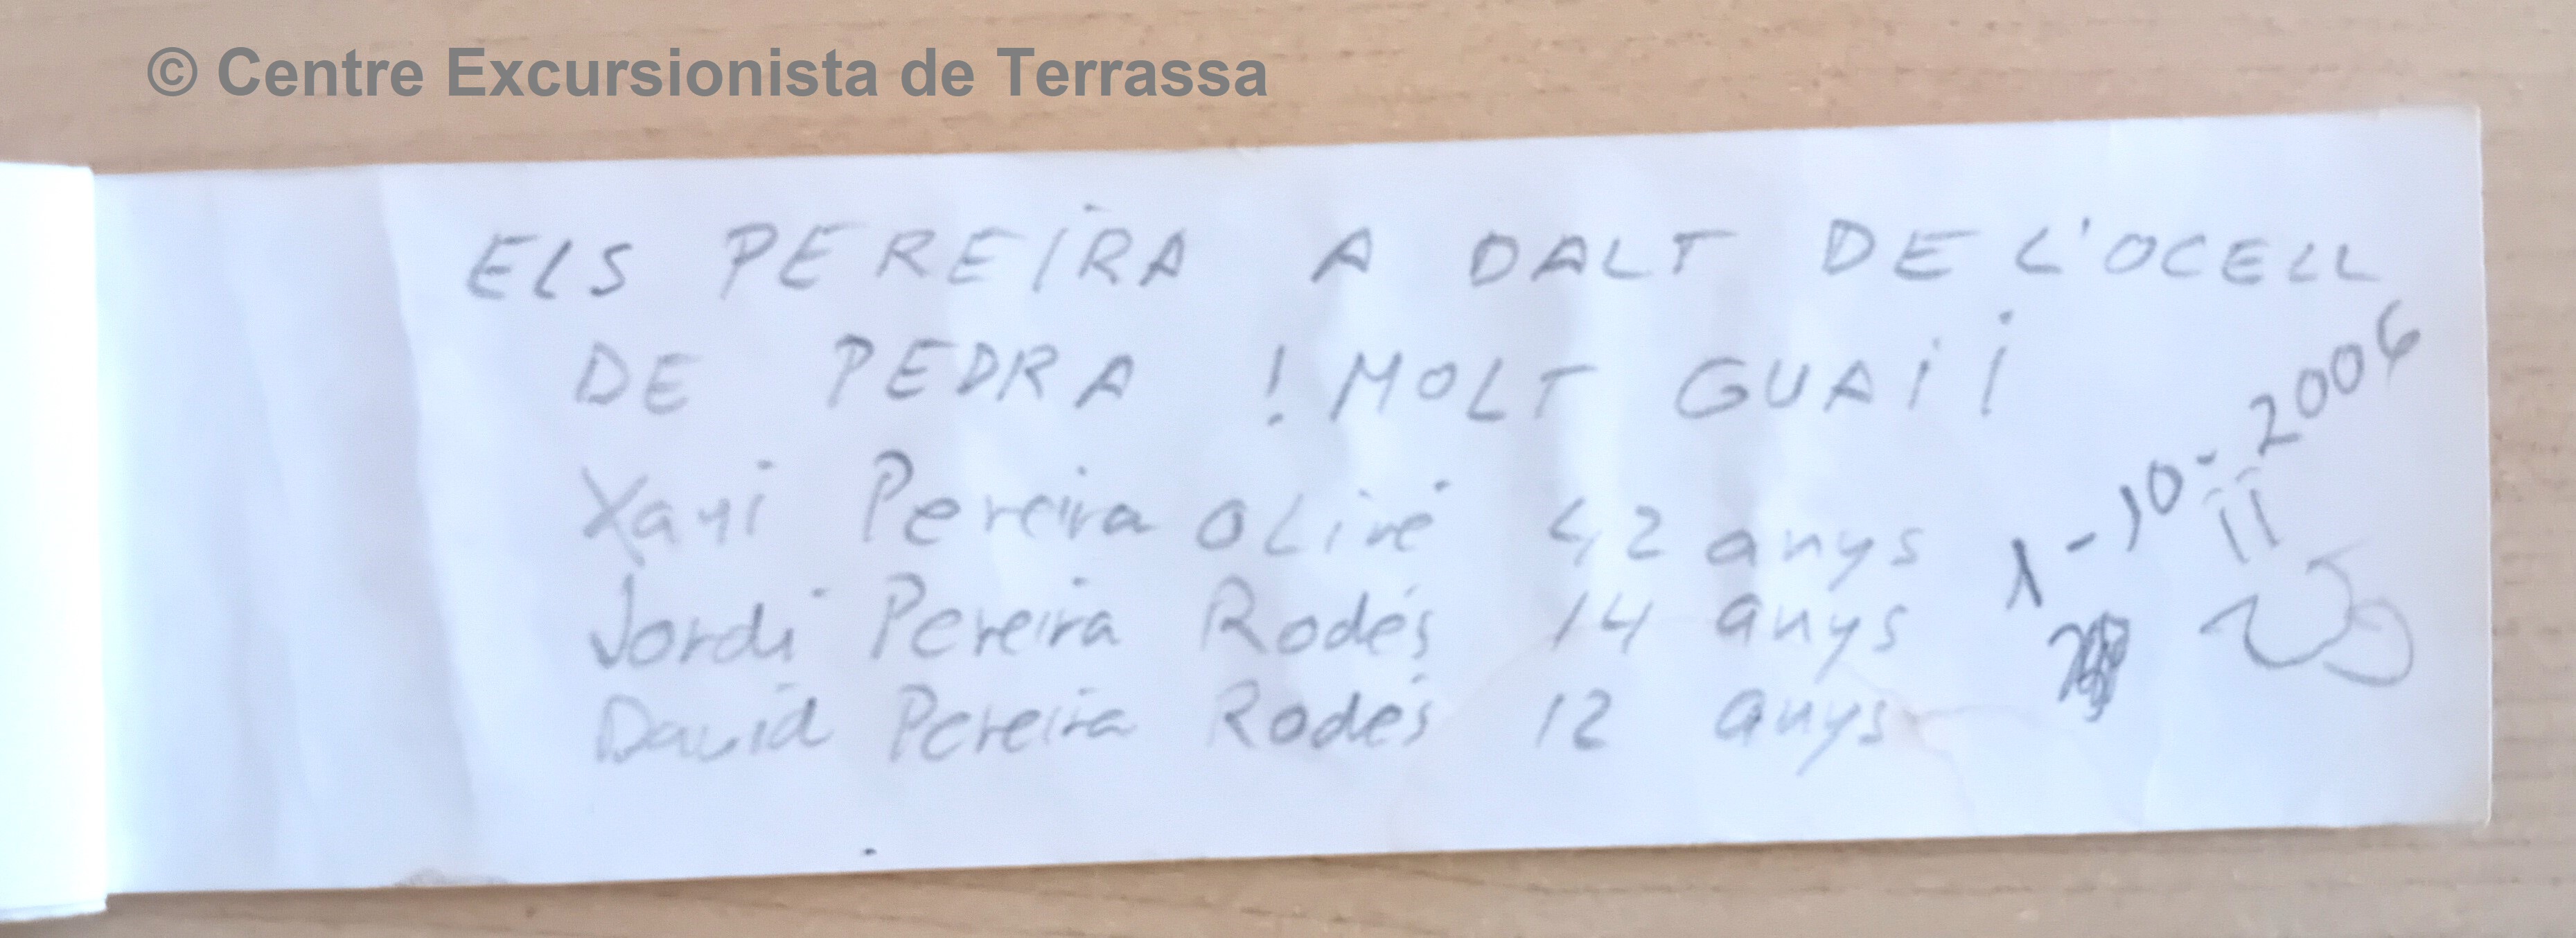 © Centre Excursionista de Terrassa
ELS PEREIRA A DALT DE L'OCELL
DE PEDRA ! MOLT GUAI¡
Xavi Pereira Oliré 42 anys
Jordi Pereira Rodés 14 anys
David Pereira Rodés 12 anys
1-10-2006